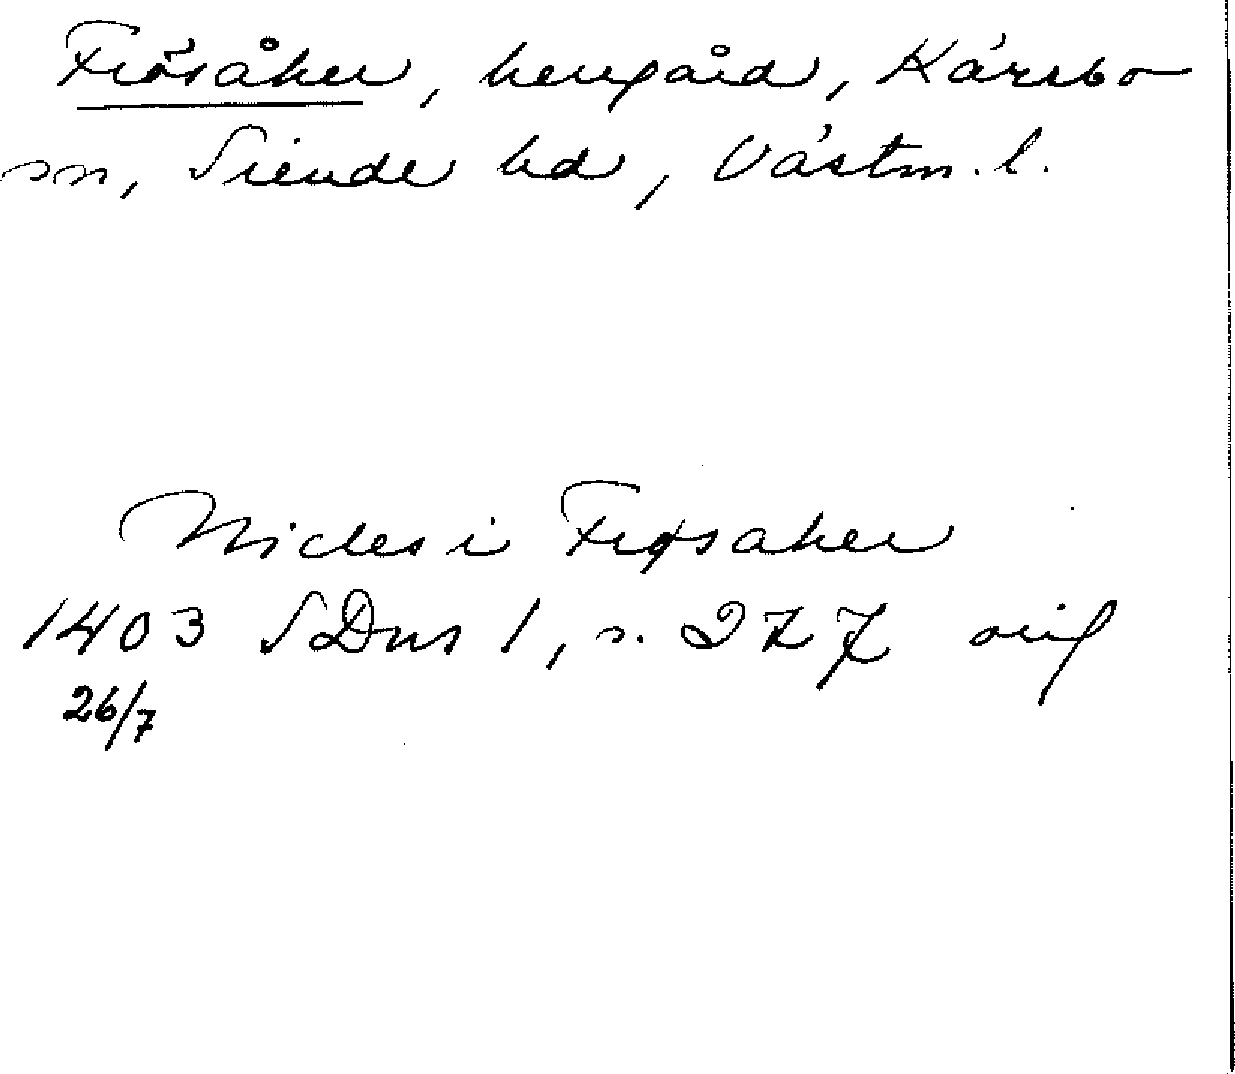 Frösåker, herrgård, Kärrbo
sn, Siende hd, Västm. l.
Nicles i Frøsaker
1403 SDns 1, s. 277 orig
26/7